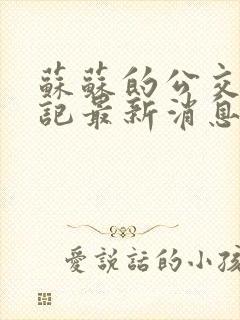 蘇蘇的公交
記最新消息
愛說話的小孩